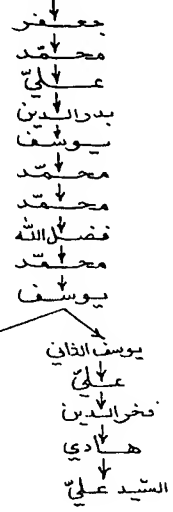 جعفر
محمّد
عليّ
بدرالدين
يوسف
محمّد
محمّد
فضل الله
محمّد
يوسف
يوسف الثاني
عليّ
فخرالدين
هادي
السيّد عليّ